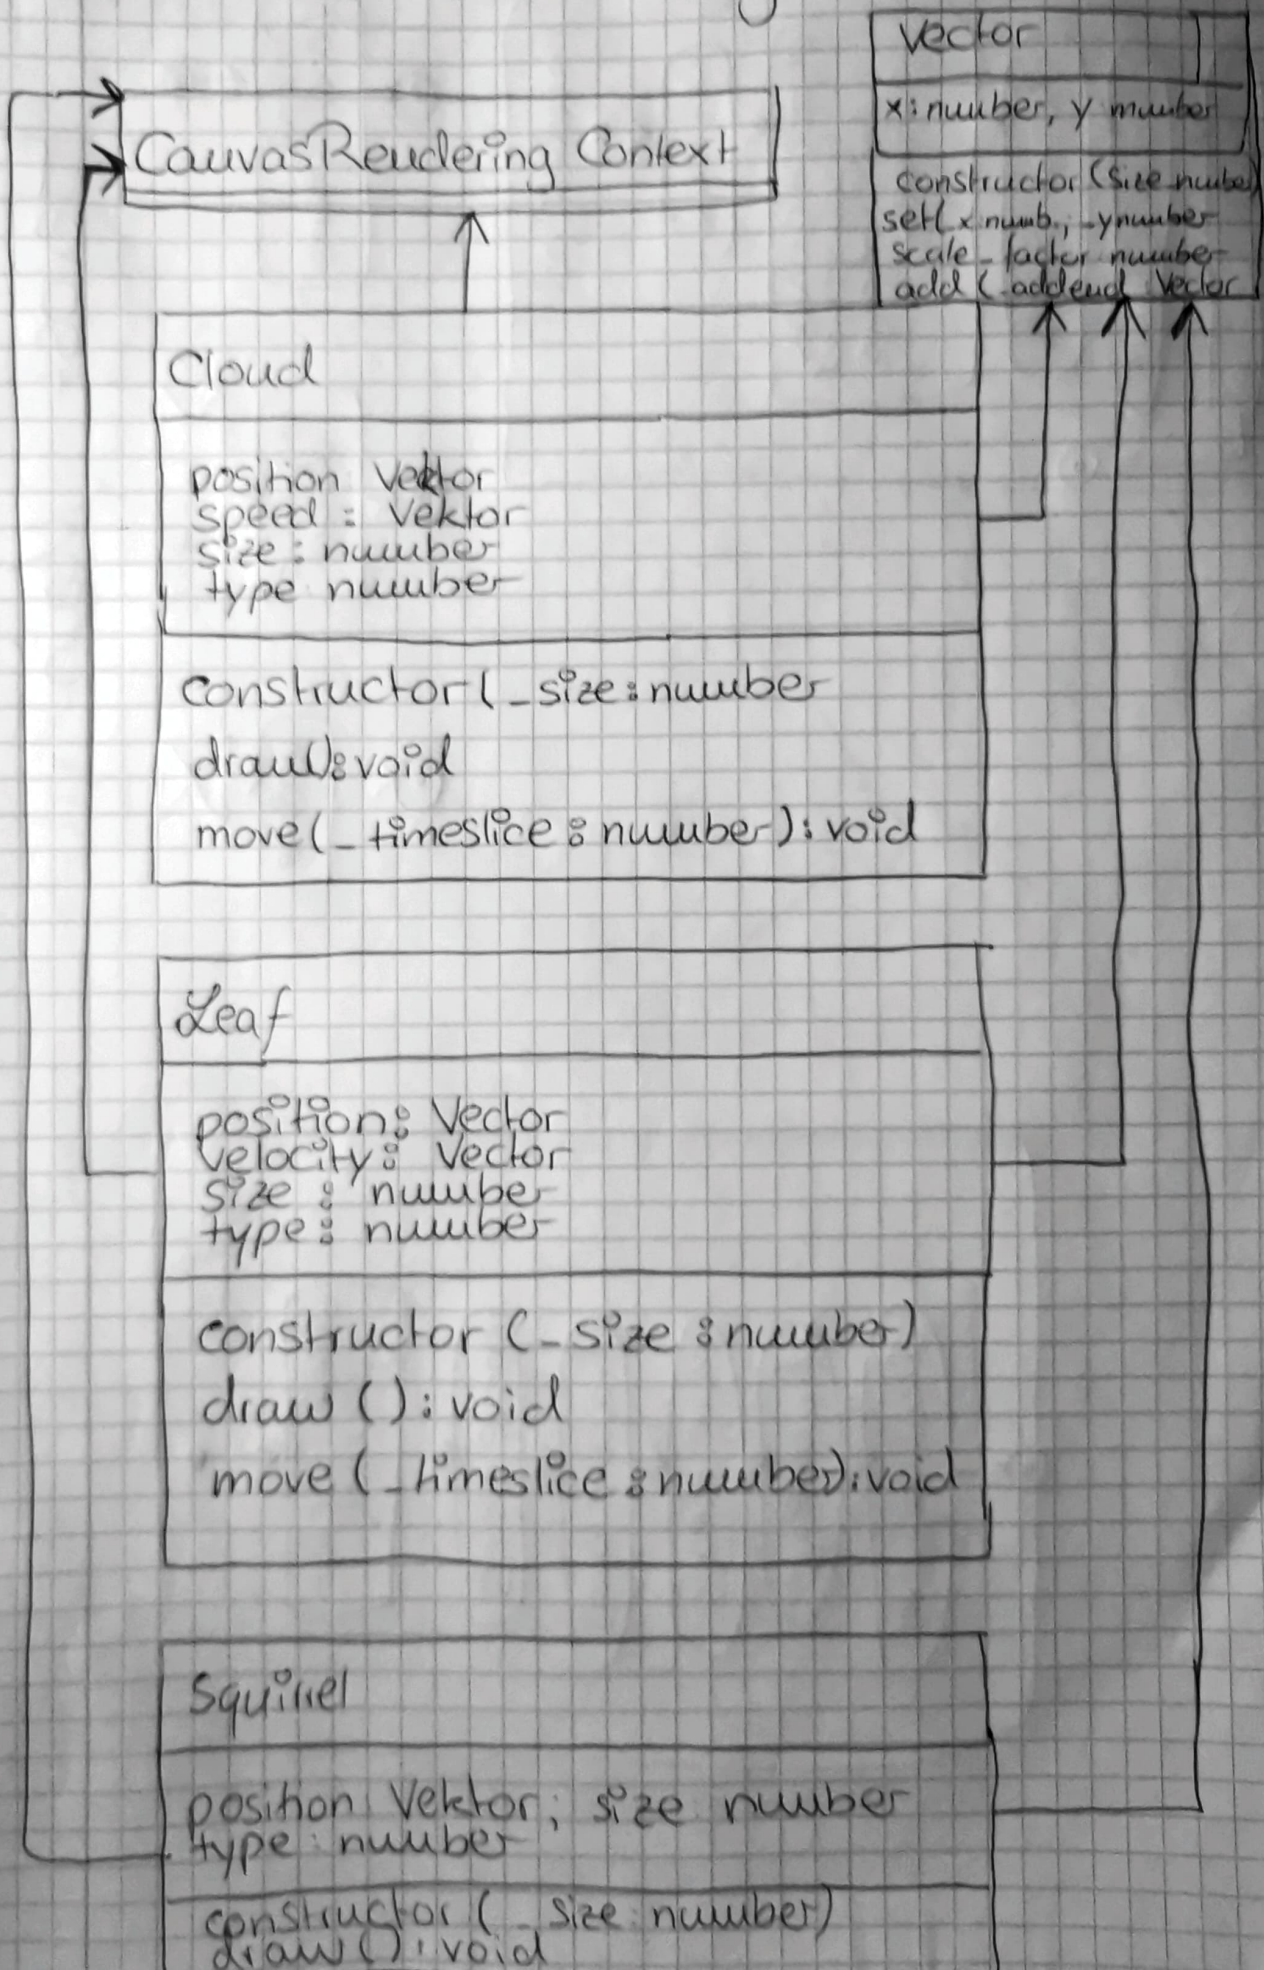 Vector
x: number, y number
constructor (size number
set( x numb., _ynumber
scale _ factor number
add (_addend Vector
CanvasRendering Context
Cloud
position Vektor
speed : Vektor
size : number
type number
constructor (_size : number
draw(): void
move (_timeslice : number) : void
Leaf
position : Vector
velocity : Vector
size : number
type : number
constructor (_size : number)
draw () : void
move (_timeslice : number) : void
Squirrel
position Vektor, size number
type number
constructor (_size number)
draw () : void